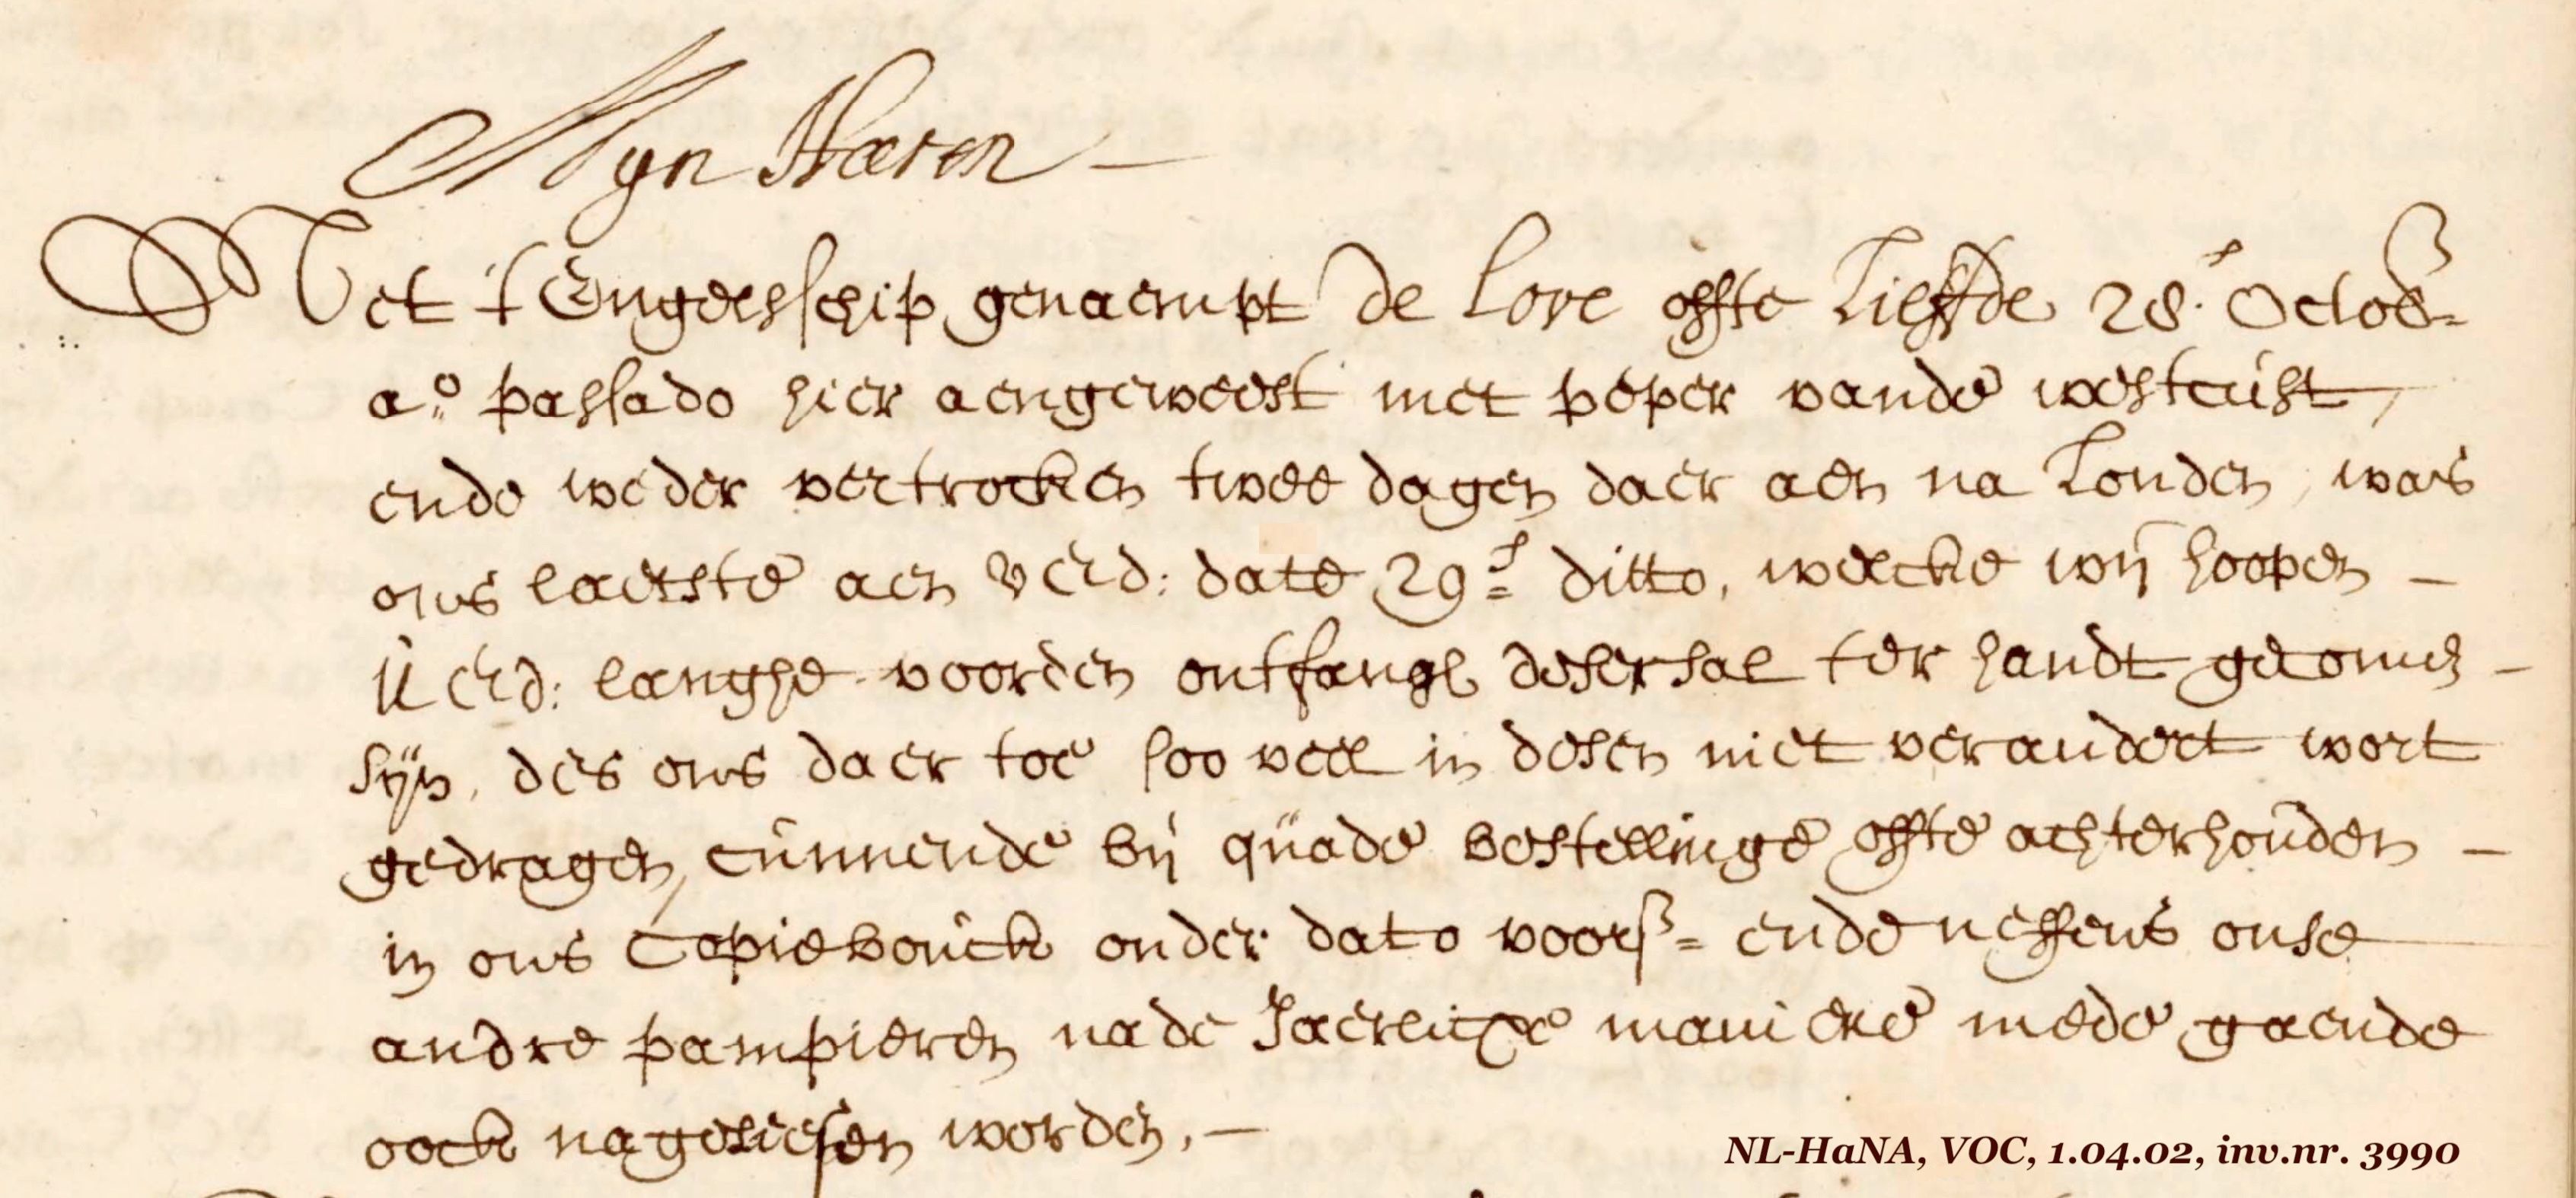 Myn Heeren
Met 't Engelsschip genaempt de Love offte Lieffde 28.e Octob=
a.o passado hier aengeweest met peper vande westcust,
ende weder vertrocken twee dagen daer aen na Londen, was
ons laetste aen UEd: date 29e ditto, welcke wij hoopen —
UEd: langhe voorden ontfangh deser sal ter handt gecomen —
sijn, des ons daer toe soo veel in desen niet verandert wort
gedragen, cunnende bij quade bestellinge offte achterhouden —
in ons Copiebouck onder dato voors= ende neffens onse
andre pampieren nade Jaerlicxe maniere mede gaende
oock nagelesen worden. —
NL-HaNA, VOC, 1.04.02, inv.nr. 3990